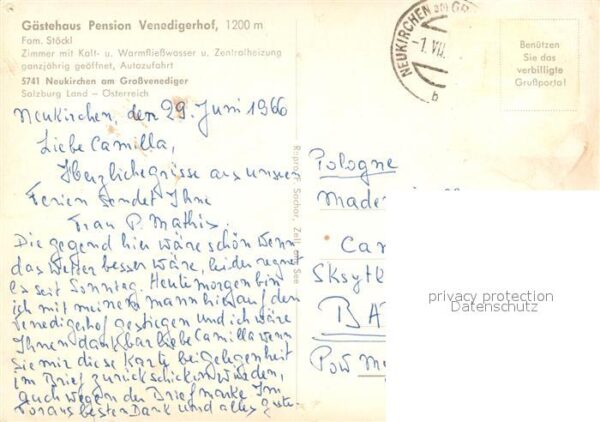 Gästehaus Pension Venedigerhof, 1200 m
Fam. Stöckl
Zimmer mit Kalt- u. Warmfließwasser u. Zentralheizung
ganzjährig geöffnet, Autozufahrt
5741 Neukirchen am Großvenediger
Salzburg Land – Österreich
Neukirchen, den 29. Juni 1966
Liebe Camilla,
Herzlichegrüsse aus unsere
Ferien sendet Ihne
Frau P. Mathis.
Die gegend hier wäre schön wenn
das Wetter besser wäre, leider regnet
es seit Sonntag. Heute morgen bin
ich mit meinem mann hierauf den
Venedigerhof gestiegen und ich wäre
Ihnen dankbar liebe Camilla wenn
Sie mir diese Karte bei gelegenheit
im Brief zurück schicken würden,
auch wegen der Briefmarke. Im
Voraus besten Dank und alles gute.
Sochor, Zell am See
NEUKIRCHEN AM GR
-1. VII.
b
Benützen
Sie das
verbilligte
Grußporto!
Pologne
Made
Car
Sksytk
BA
Pow
privacy protection
Datenschutz